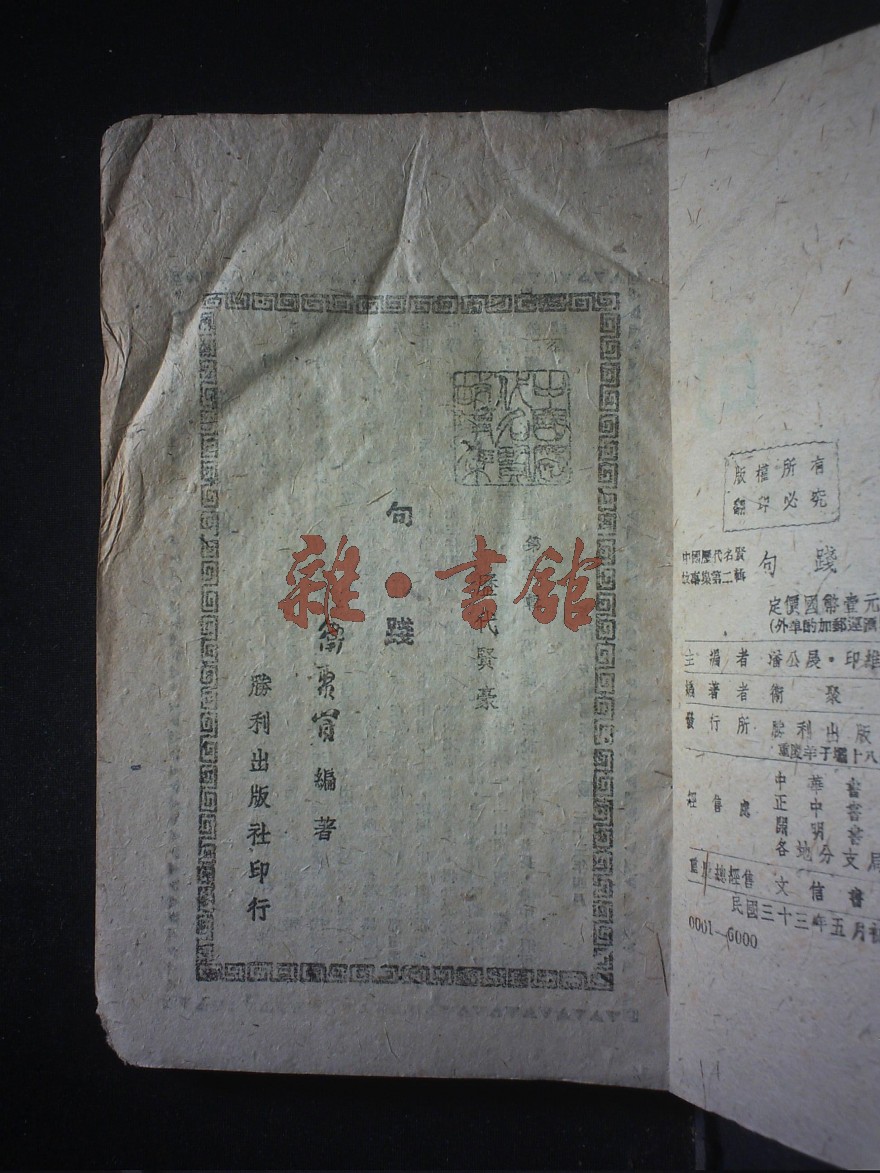 中國歷代名賢故事集
第
歷代賢豪
句踐
衛聚賢編著
勝利出版社印行
雜·書館
版權所有
翻印必究
中國歷代名賢
故事集第二輯
句踐
定價國幣壹元
(外埠酌加郵運
主編者 潘公展·印維
編著者 衛聚
發行所 勝利出版
重慶羊子壩十八
經售處
中華書
正中書
開明書
各地分支局
重慶總經售 文信書
民國三十三年五月初
0001—6000